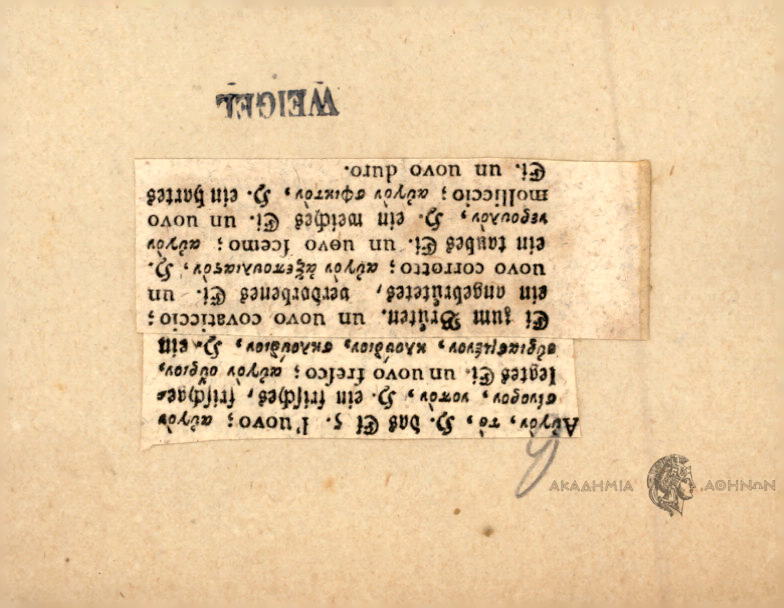 WEIGEL
Αὐγὸν, τὸ, H. das Ei ς. l'uovo; αὐγὸν
νοπὸν, H. ein friſches, friſchge-
legtes Ei. un uovo freſco; αὐγὸν οὔριον,
οὐριασμένον, κλούδιον, σκλούδιον, H. ein
Ei zum Brüten. un uovo covaticcio;
ein angebrütetes, verdorbenes Ei. un
uovo corrotto; αὐγὸν ἀξεπουλιαστὸν, H.
ein taubes Ei. un uovo ſcemo; αὐγὸν
νερουλὸν, H. ein weiches Ei. un uovo
molliccio; αὐγὸν σφικτὸν, H. ein hartes
Ei. un uovo duro.
ΑΚΑΔΗΜΙΑ ΑΘΗΝΩΝ